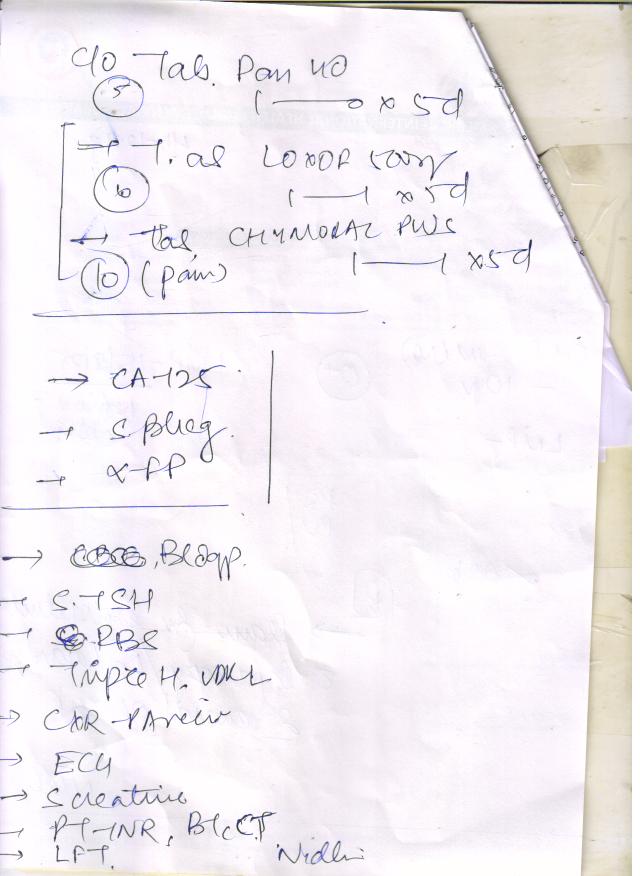 c/o Tab. Pan 40
5 1——o x 5d
→ T. as LOXOF 500mg
10 1——1 x 5d
→ Tab, CHYMORAL PLUS
10 (pain) 1——1 x5d
→ CA-125
→ S. βhcg.
→ α-FP
→ Bldgp.
→ S. TSH
→ RBS
→ Triple H. VDRL
→ CXR - PA view
→ ECG
→ S creatine
→ PT-INR, BT, CT
→ LFT. Nidhi